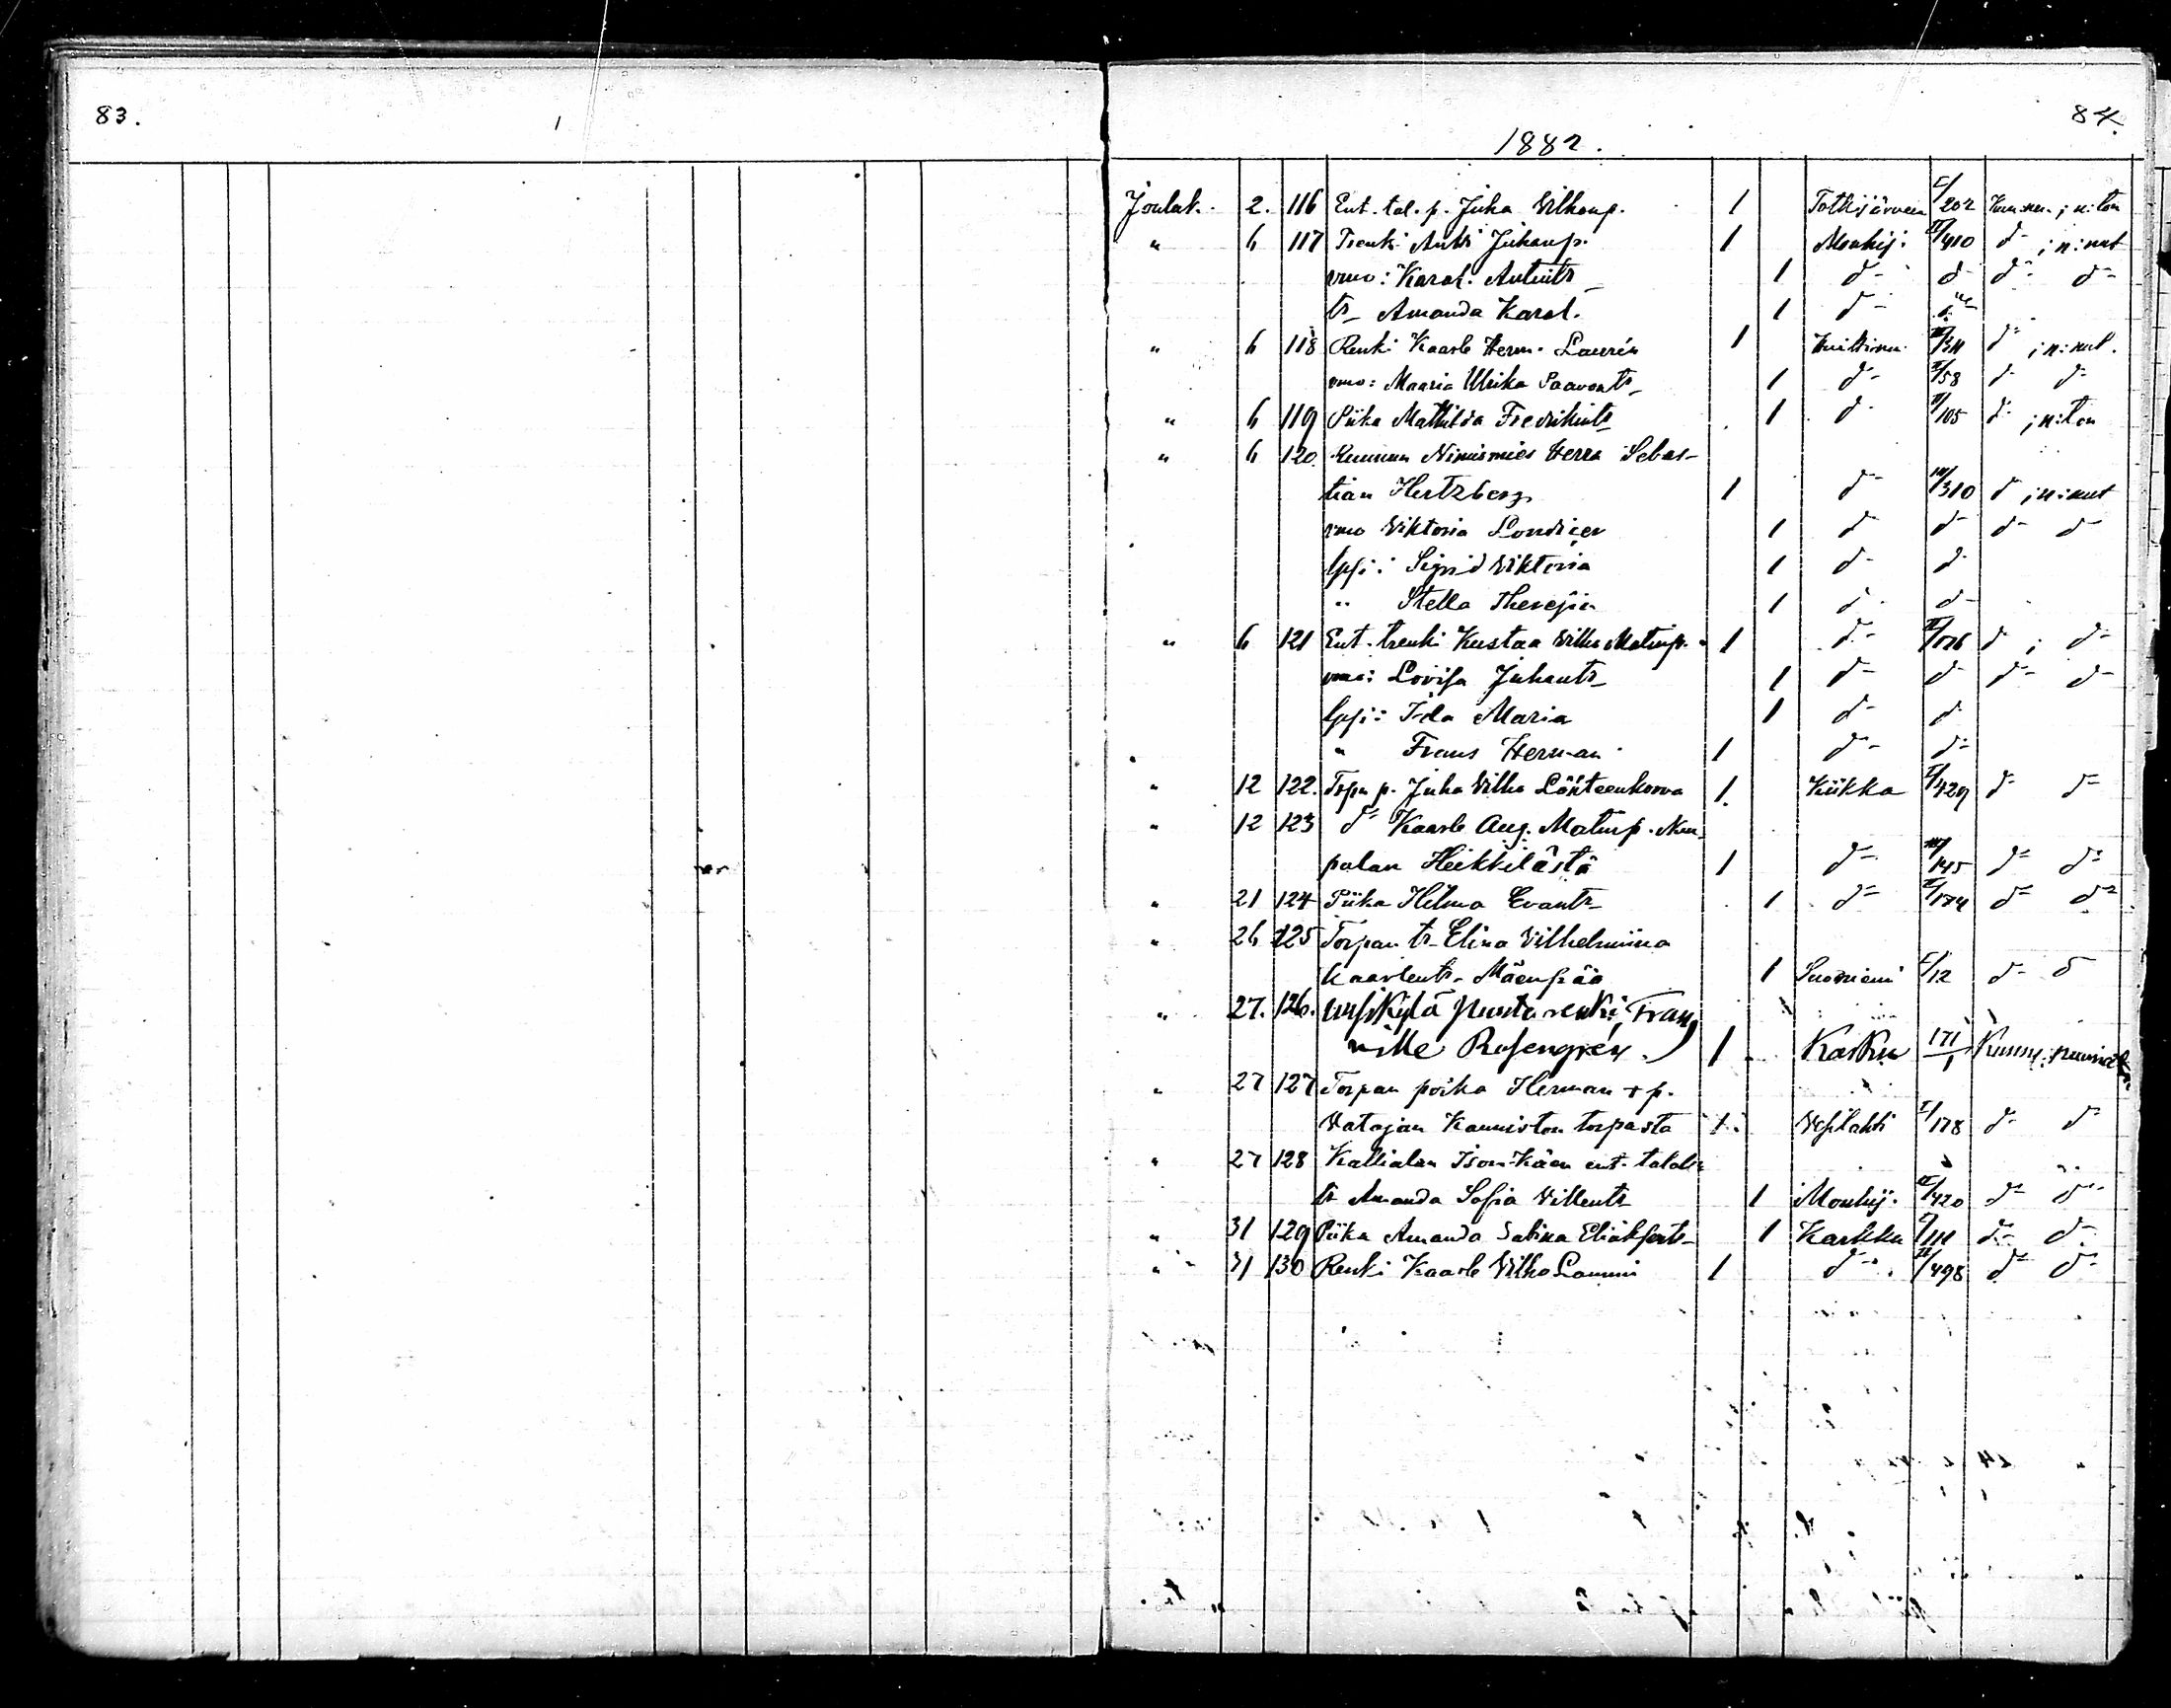 83.
84.
1882.
Joulak. 2. 116 Ent. tal. p. Juha Vilhonp. 1 Tottijärveen I/202 Kun.nn. ; n:ton
" 6 117 Trenki Antti Juhanp. 1 Mouhij: II/410 d- ; n:nut
vmo: Karol. Antints 1 d- d- d- d-
tr Amanda Karol. 1 d-
" 6 118 Renki Kaarle Herm. Laurén 1 III/311 d- ; n:nut.
vmo: Maaria Ulrika Paavonts 1 d- II/58 d- d-
" 6 119 Piika Mathilda Fredrikints 1 d- II/105 d- ; n:ton
" 6 120. Kunnan Nimismies Herra Sebas-
tian Hertzberg 1 d- III/310 d- ; n:nut
vmo Viktoria Londicer 1 d- d- d- d-
lpsi: Sigrid Viktoria 1 d- d-
" Stella Theresia 1 d- d-
" 6 121 Ent. trenki Kustaa Vilho Matinp. 1 d- d- ; d-
vmo: Lovisa Juhants 1 d- d- d- d-
lpsi: Ida Maria 1 d- d-
" Frans Herman 1 d- d-
" 12 122. Trpn p. Juha Vilho Lähteenkorva 1. Kiikka I/429 d- d-
" 12 123 d- Kaarle Aug. Matinp. Nun-
palan Heikkilästä 1 d- III/145 d- d-
" 21 124 Piika Hilma Evants 1 d- II/174 d- d-
" 26 125 Torpan tr Elina Vilhelmiina
Kaarlents. Mäenpää 1 Suoniemi I/12 d- d-
" 27. 126. renki, Frans
Ville Rosengren. 1 Karkku 171/1 Kunn.
" 27 127 Torpan poika Herman + p.
Vatajan Kanniston torpasta 1. Vesilahti I/178 d- d-
" 27 128 Kallialan Ison-Käen ent. talol.
tr Amanda Sofia Villents 1 Mouhij. II/420 d- d-
" 31 129 Piika Amanda Sabina Eliaksents 1 Karkku I/111 d- d-
" 31 130 Renki Kaarle Vilho Lammi 1 d- II/498 d- d-